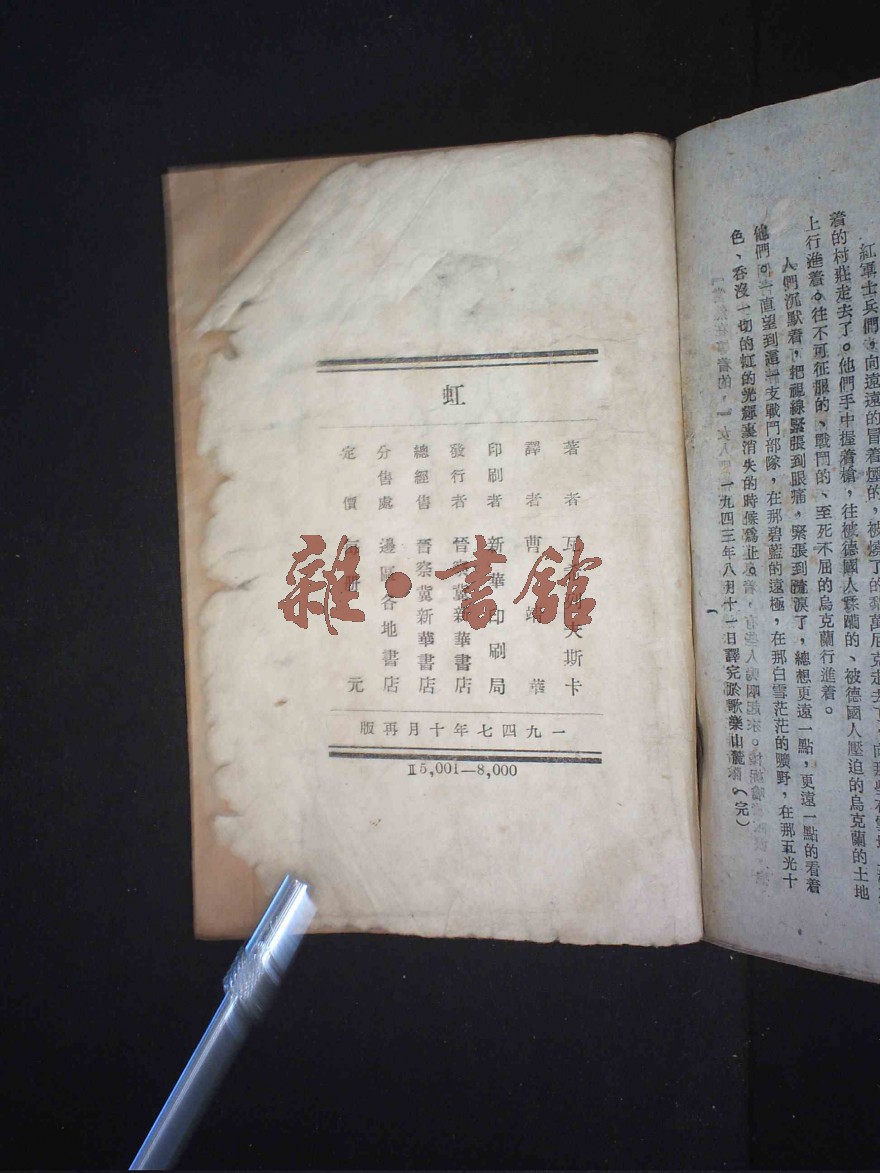 紅軍士兵們，向遠遠的冒着煙的，被燒了的
着的村莊走去了。他們手中握着槍，往被德國人蹂躪的、被德國人壓迫的烏克蘭的土地
上行進着。往不可征服的、戰鬥的、至死不屈的烏克蘭行進着。
人們沉默着，把視線緊張到眼痛，緊張到流淚了，總想更遠一點，更遠一點的看着
他們。一直望到這一支戰鬥部隊，在那碧藍的遠極，在那白雪茫茫的曠野，在那五光十
色、吞沒一切的虹的光輝裏消失的時候爲止。
一九四三年八月十一日譯完於歌樂山麓。（完）
虹
著者 瓦希列夫斯卡
譯者 曹靖華
印刷者 新華印刷局
發行者 晉察冀新華書店
總經售 晉察冀新華書店
分售處 邊區各地書店
定價 每冊 元
一九四七年十月再版
Ⅱ5,001—8,000
雜·書館